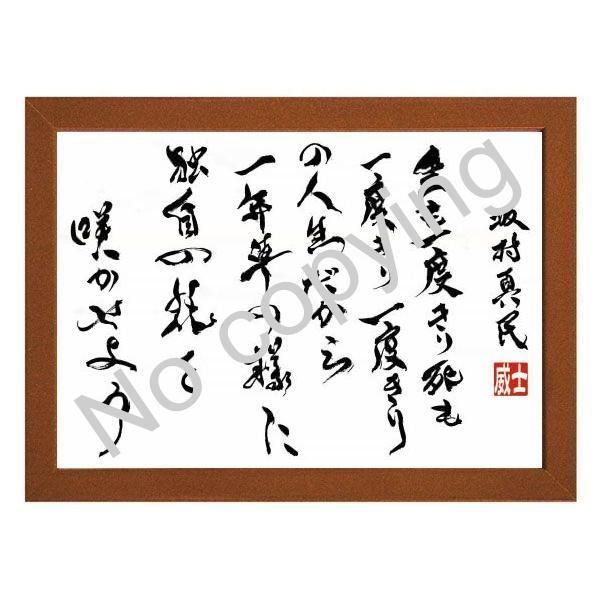 坂村真民
士威
生も一度きり死も
一度きり一度きり
の人生だから
一年草の様に
独自の花を
咲かせよう
No copying